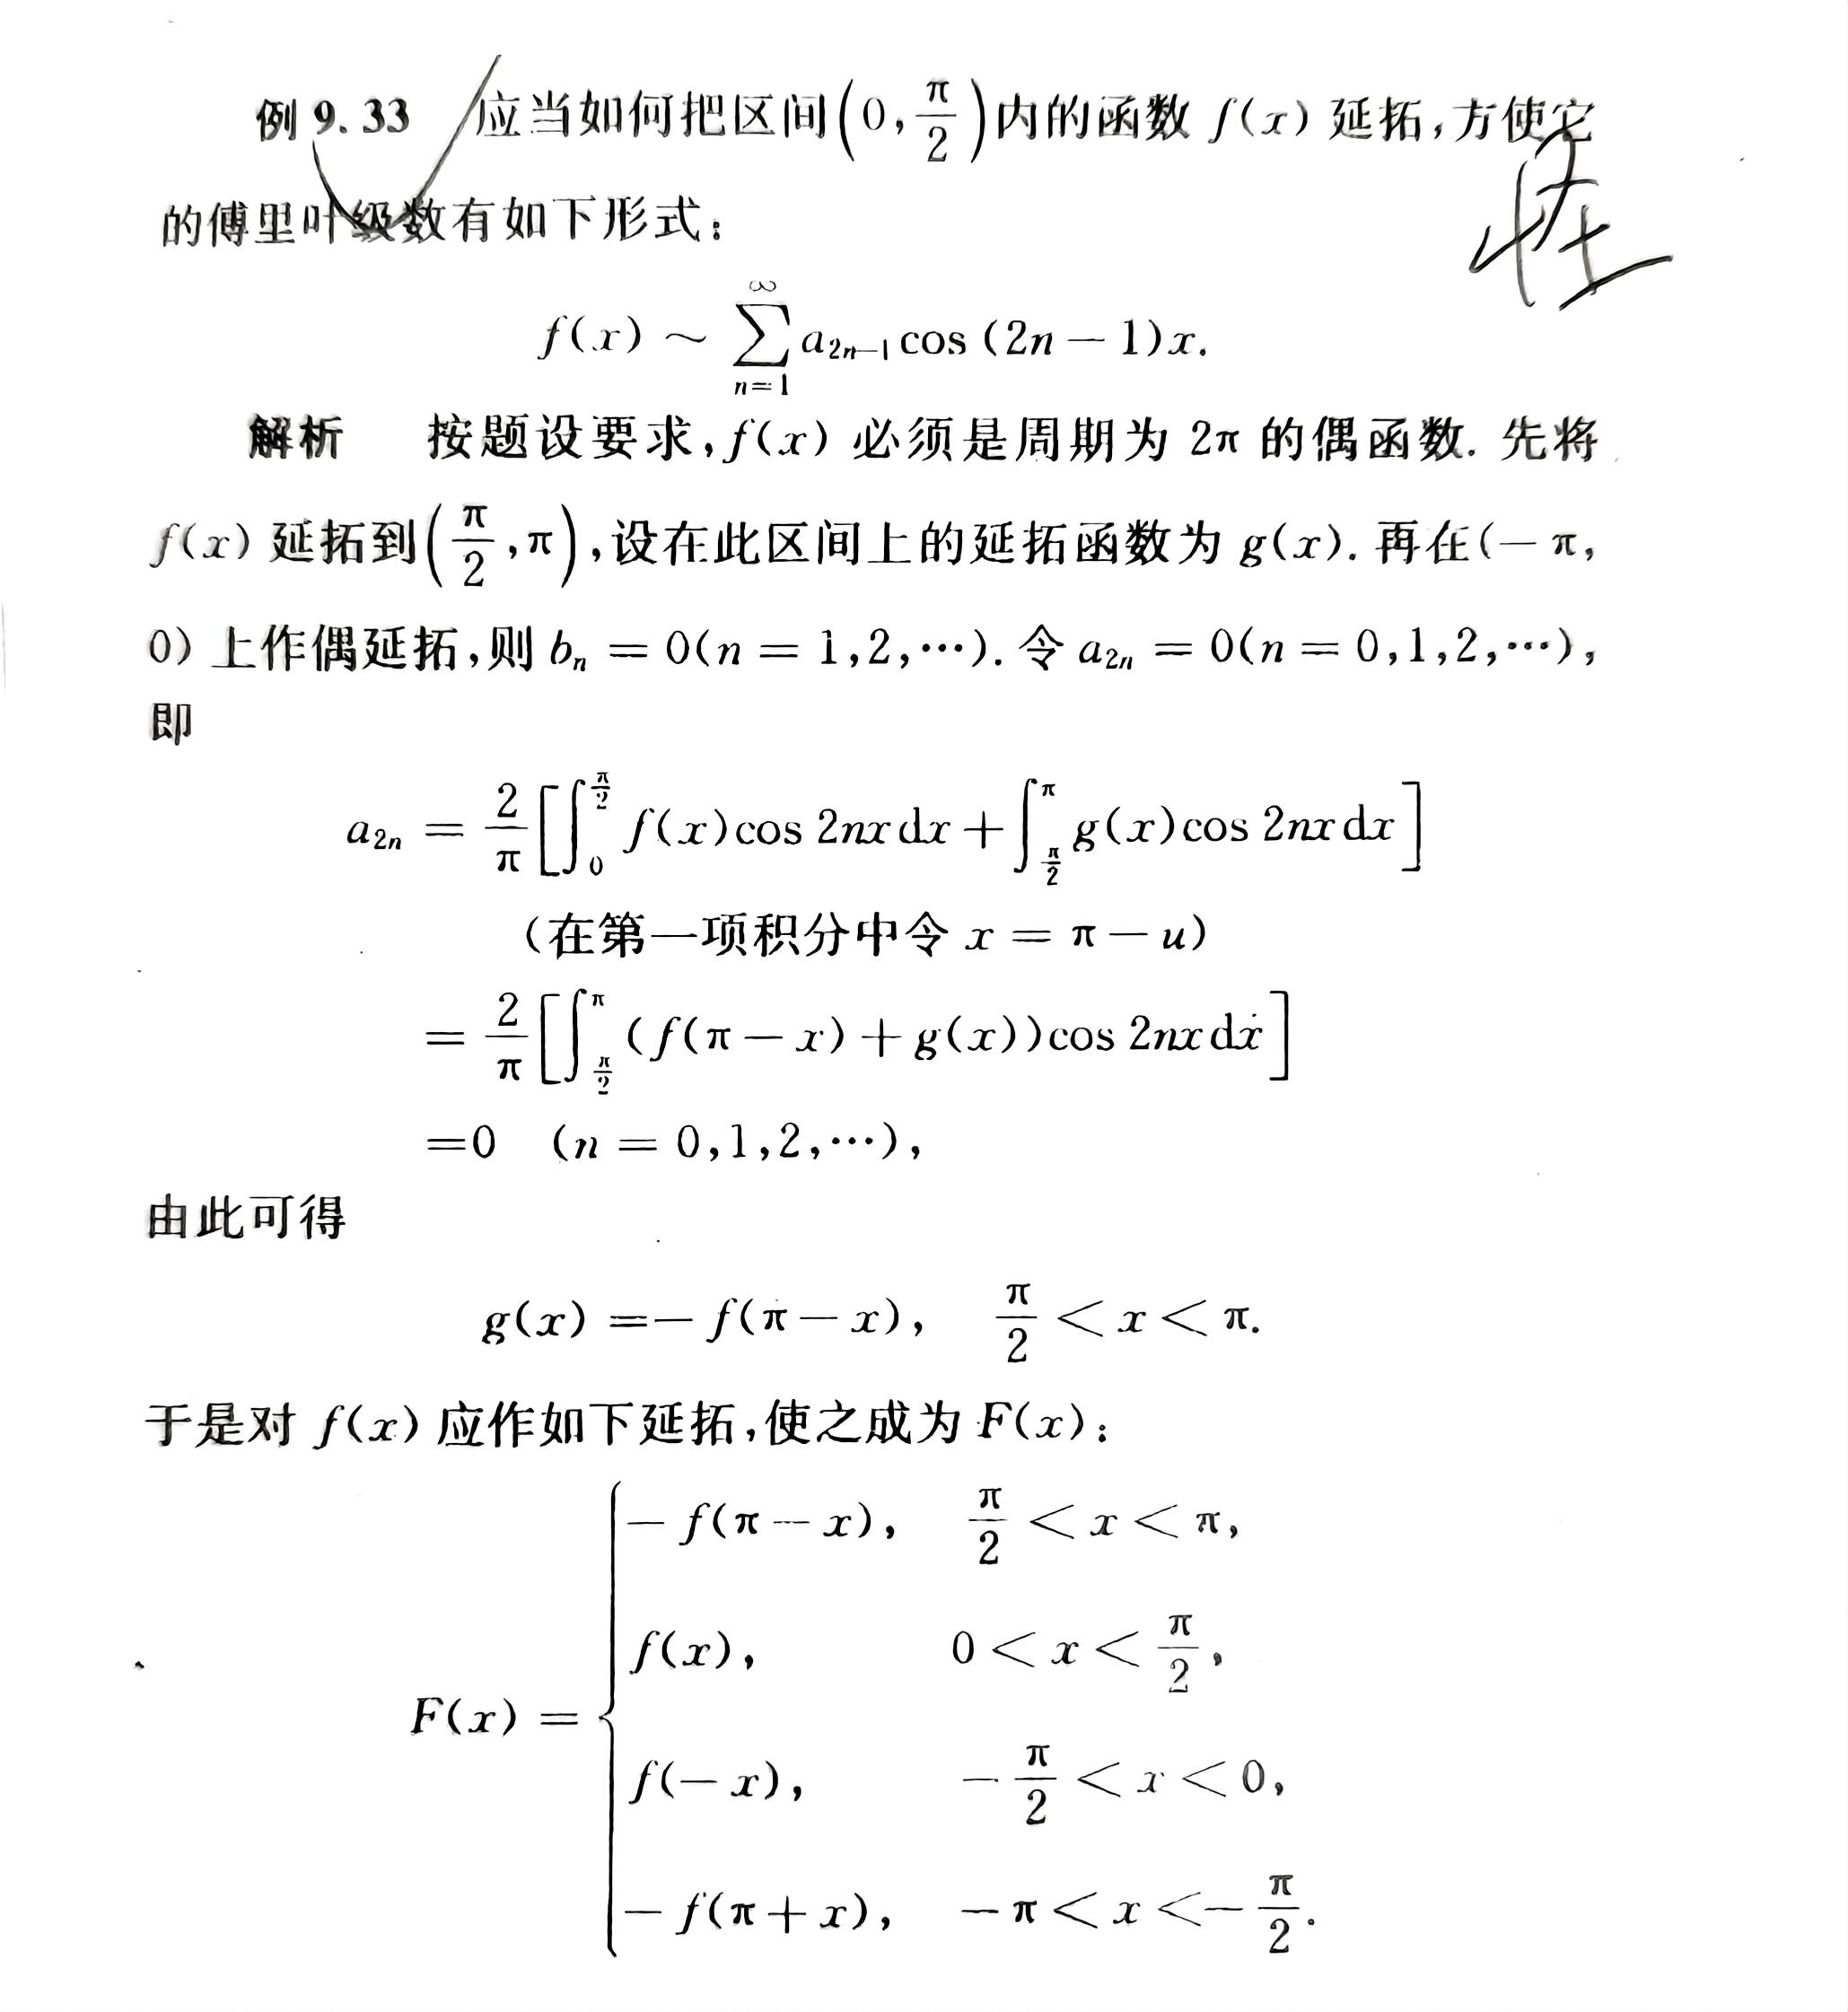 例 9.33 应当如何把区间(0, π/2)内的函数 f(x) 延拓,方使它
的傅里叶级数有如下形式:
f(x) ~ ∑_{n=1}^{∞} a_{2n-1} cos (2n − 1)x.
解析 按题设要求,f(x) 必须是周期为 2π 的偶函数. 先将
f(x) 延拓到(π/2, π),设在此区间上的延拓函数为 g(x). 再在(− π,
0) 上作偶延拓,则 b_n = 0(n = 1,2,⋯). 令 a_{2n} = 0(n = 0,1,2,⋯),
即
a_{2n} = 2/π [∫_0^{π/2} f(x)cos 2nx dx + ∫_{π/2}^{π} g(x)cos 2nx dx]
(在第一项积分中令 x = π − u)
= 2/π [∫_{π/2}^{π} (f(π − x) + g(x))cos 2nx dx]
=0 (n = 0,1,2,⋯),
由此可得
g(x) =− f(π − x), π/2 < x < π.
于是对 f(x) 应作如下延拓,使之成为 F(x):
− f(π − x), π/2 < x < π,
f(x), 0 < x < π/2,
F(x) = {
f(− x), − π/2 < x < 0,
− f(π + x), − π < x <− π/2.